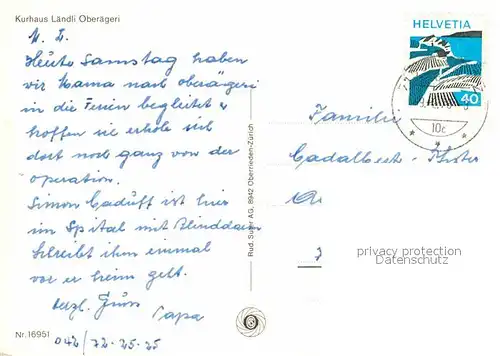 Kurhaus Ländli Oberägeri
M. L.
Heute Samstag haben
wir Mama nach oberägeri
in die Ferien begleitet &
hoffen sie erhole sich
dort noch ganz von der
operation.
Simon Caduff ist hier
im Spital mit Blinddarm
schreibt ihm einmal
vor er heim geht.
Herzl. Gruss
Papa
Nr. 16951
042/72-25-25
Rud. Suter AG, 8942 Oberrieden-Zürich
HELVETIA
40
10c
Familie
Cadalbert-
privacy protection
Datenschutz